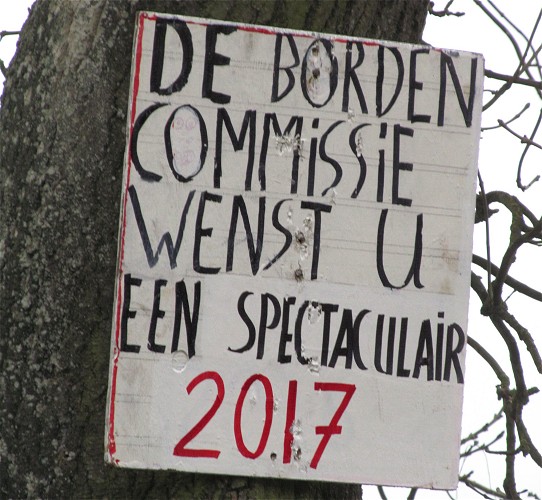 DE BORDEN
COMMISSIE
WENST U
EEN SPECTACULAIR
2017